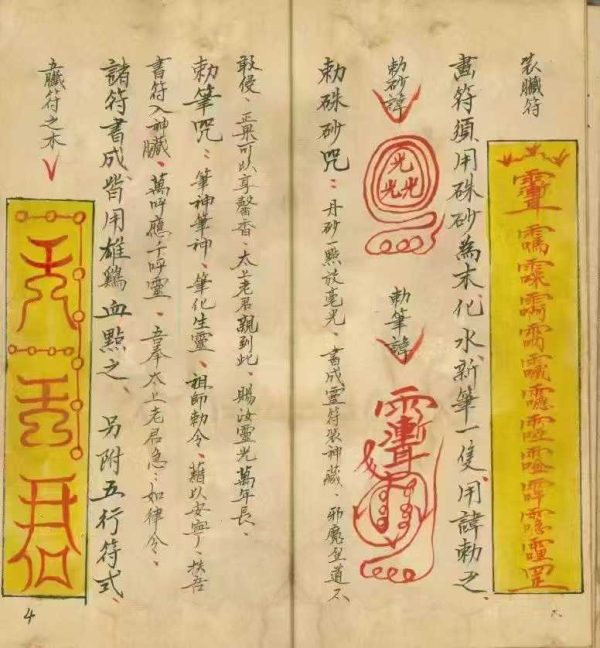 装臟符
畫符須用硃砂為末化水、新筆一隻、用諱勅之、
勅砂諱
光光光
勅筆諱
勅硃砂咒：丹砂一點放毫光、書成靈符裝神藏、邪魔聖道不
敢侵、正果可以享馨香、太上老君親到此、賜汝靈光萬年長、
勅筆咒：筆神筆神、筆化生靈、祖師勅令、藉以安寧、扶吾
書符入神臟、萬呼應千呼靈、吾奉太上老君急：如律令、
諸符書成、皆用雄鷄血點之、另附五行符式、
五臟符之木
4